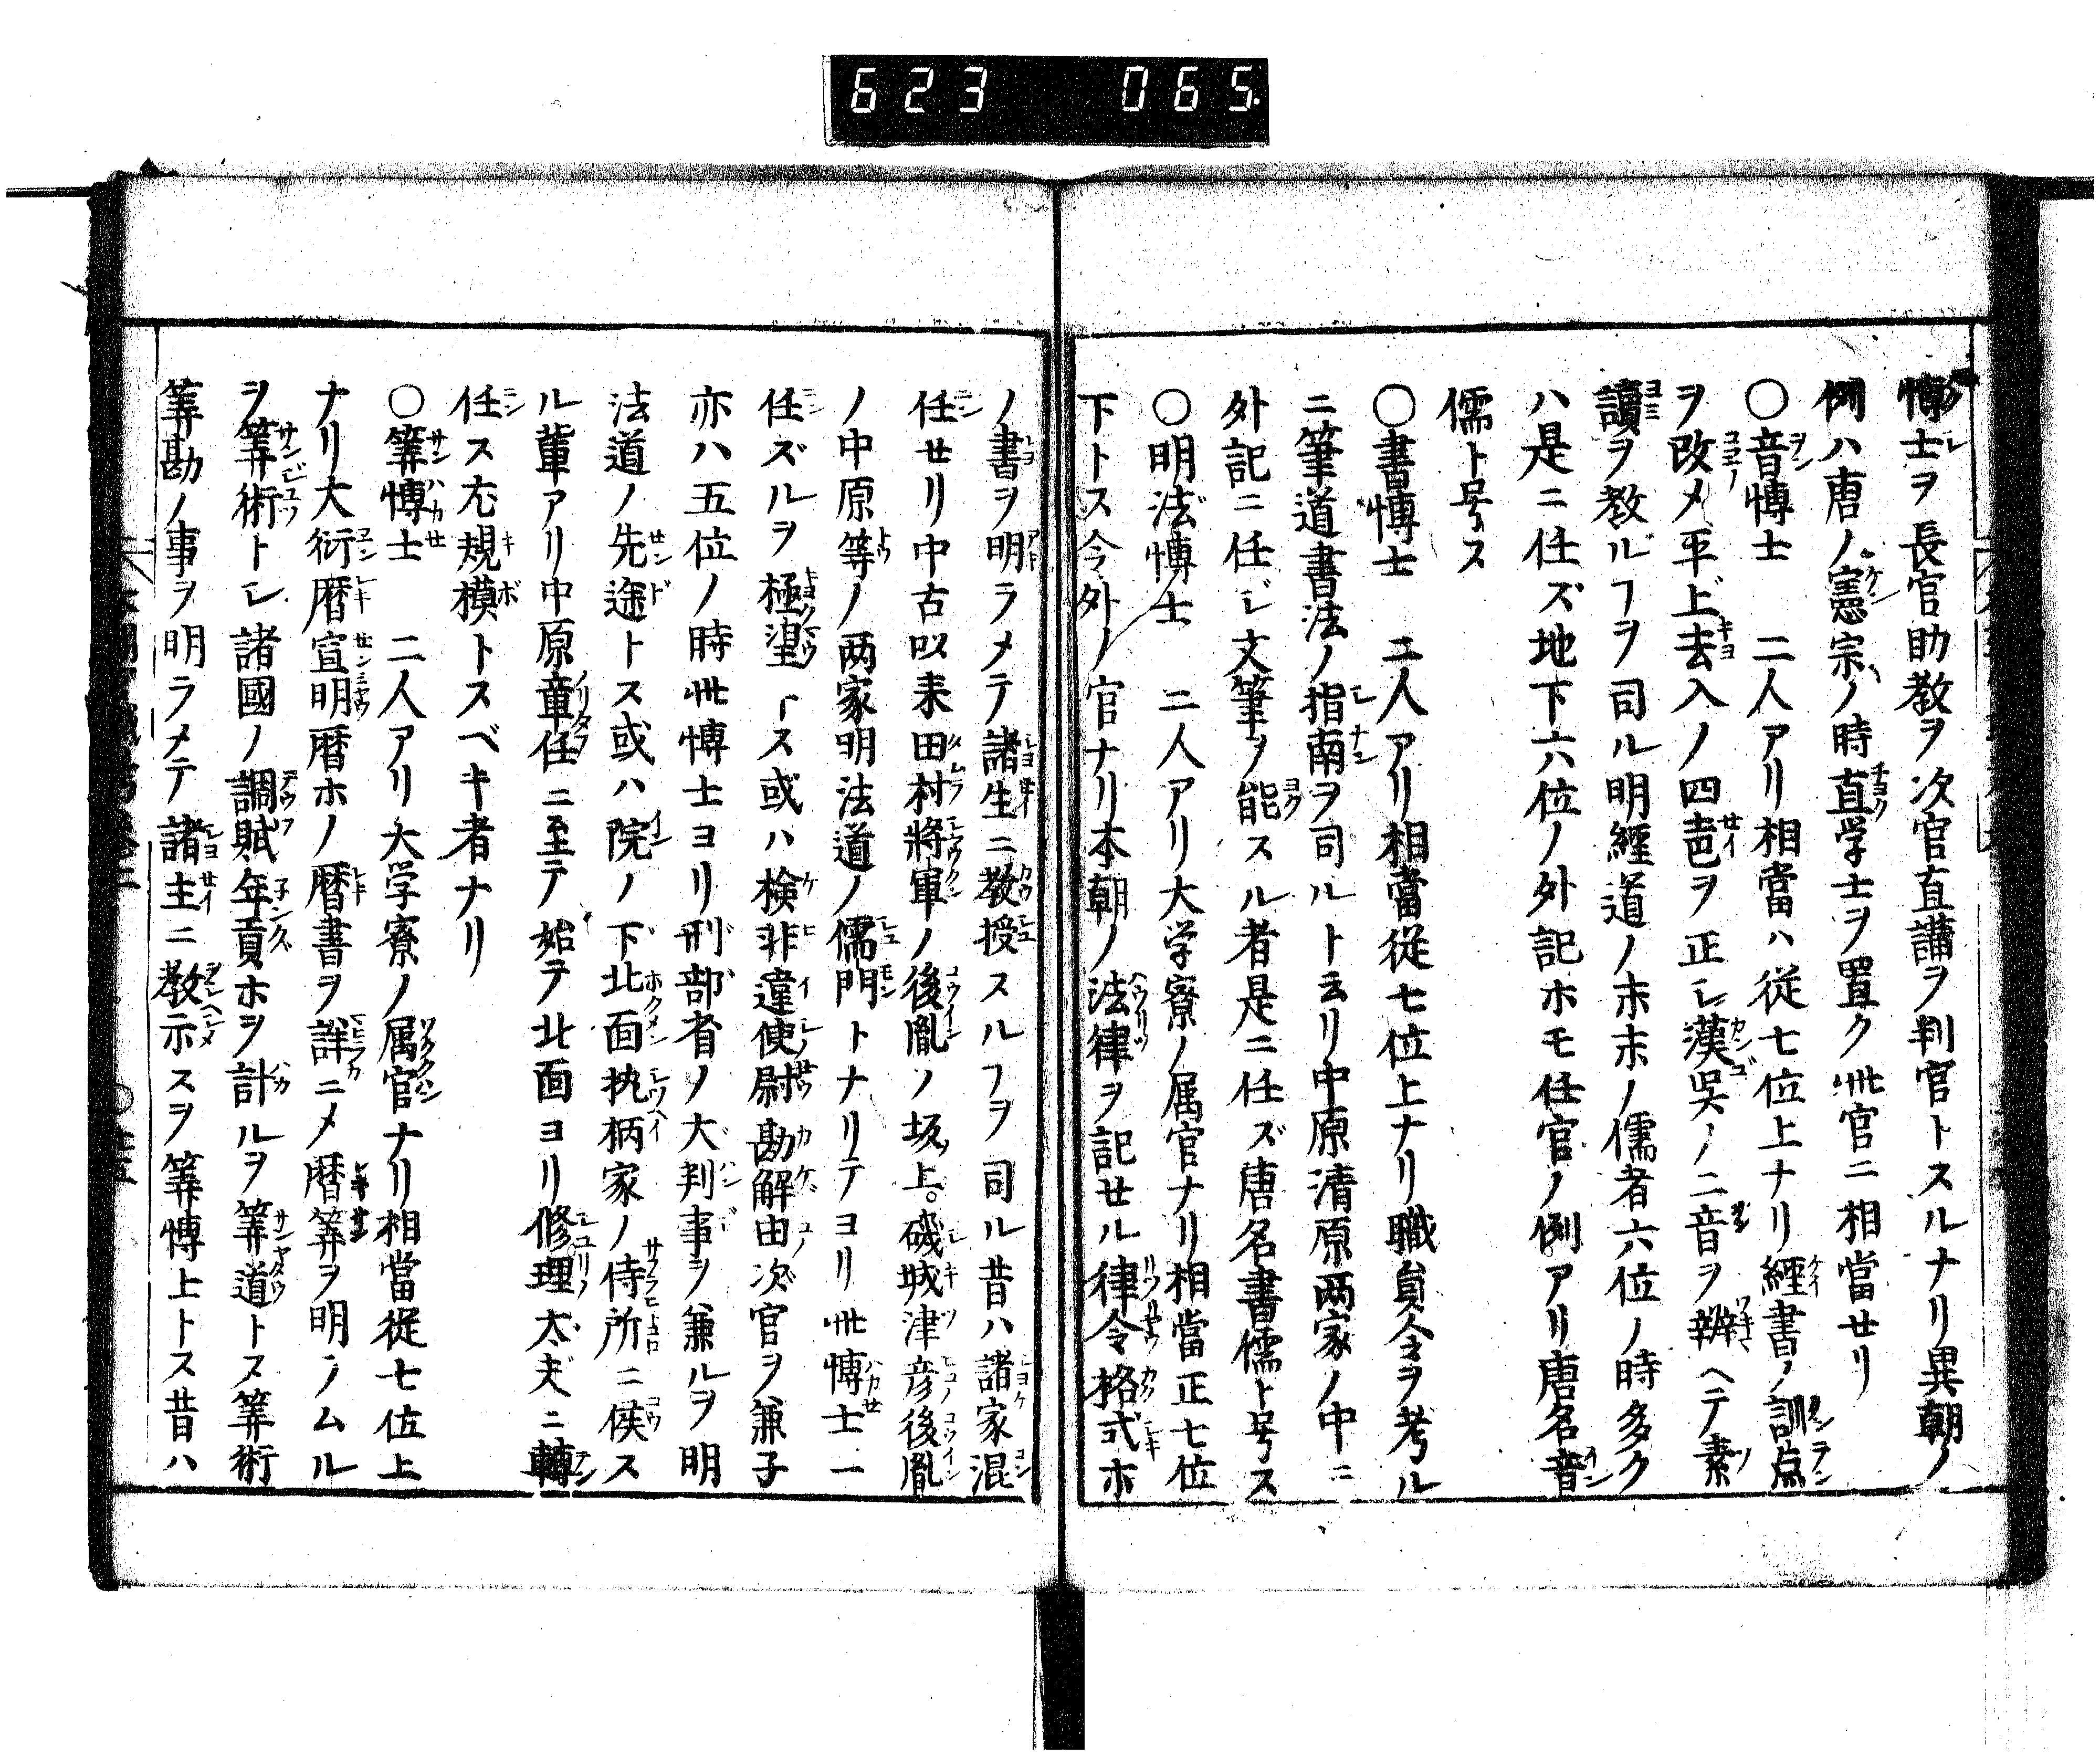 623 065
博士ヲ長官助教ヲ次官直講ヲ判官トスルナリ異朝ノ
例ハ唐ノ憲宗ノ時直学士ヲ置ク此官ニ相當せリ
〇音博士 二人アリ相當ハ従七位上ナリ經書ノ訓点
ヲ改メ平上去入ノ四声ヲ正シ漢呉ノ二音ヲ辨ヘテ素
讀ヲ教ルヿヲ司ル明經道ノ末末ノ儒者六位ノ時多ク
ハ是ニ任ズ地下六位ノ外記ホモ任官ノ例アリ唐名音
儒ト号ス
〇書博士 二人アリ相當従七位上ナリ職負令ヲ考ル
ニ筆道書法ノ指南ヲ司ルト云リ中原清原两家ノ中ニ
外記ニ任ジ文筆ヲ能スル者是ニ任ズ唐名書儒ト号ス
〇明法博士 二人アリ大学寮ノ属官ナリ相當正七位
下トス令外ノ官ナリ本朝ノ法律ヲ記せル律令格式ホ
ノ書ヲ明ラメテ諸生ニ教授スルヿヲ司ル昔ハ諸家混
任せリ中古以来田村將軍ノ後胤ノ坂上。磯城津彦後胤
ノ中原等ノ两家明法道ノ儒門トナリテヨリ此博士ニ
任ズルヲ極望トス或ハ検非違使尉勘解由次官ヲ兼子
亦ハ五位ノ時此博士ヨリ刑部省ノ大判事ヲ兼ルヲ明
法道ノ先途トス或ハ院ノ下北面执柄家ノ侍所ニ侯ス
ル輩アリ中原章任ニ至テ始テ北面ヨリ修理大夫ニ轉
任ス尤規模トスベキ者ナリ
〇筭博士 二人アリ大学寮ノ属官ナリ相當従七位上
ナリ大衍暦宣明暦ホノ暦書ヲ詳ニメ暦筭ヲ明ラムル
ヲ筭術トシ諸國ノ調賦年貢ホヲ計ルヲ筭道トス筭術
筭勘ノ事ヲ明ラメテ諸主ニ教示スヲ筭博上トス昔ハ